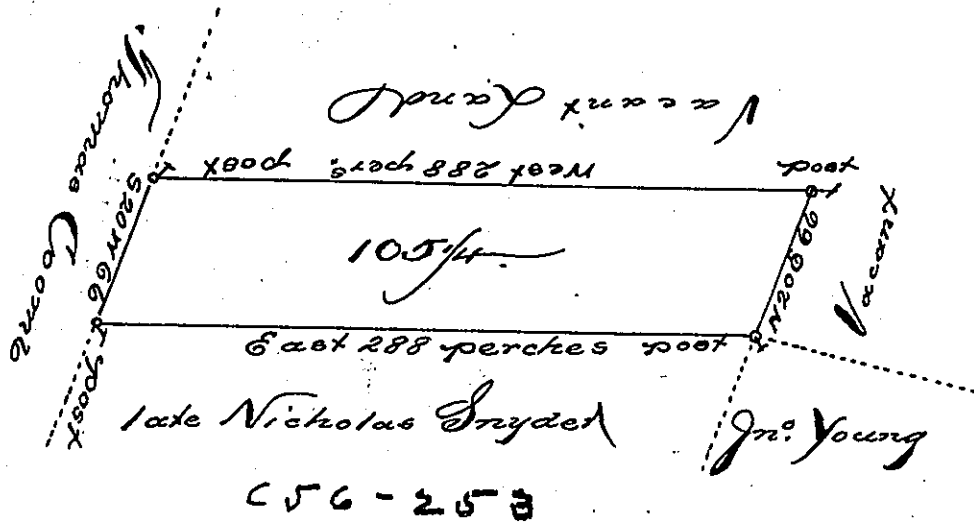 Thomas Coome
Vacant Land
West 288 pers. post
post
S20W66
105 1/4
N20E66
Vacant
East 288 perches post
post
late Nicholas Snyder
Jno. Young
C56-253